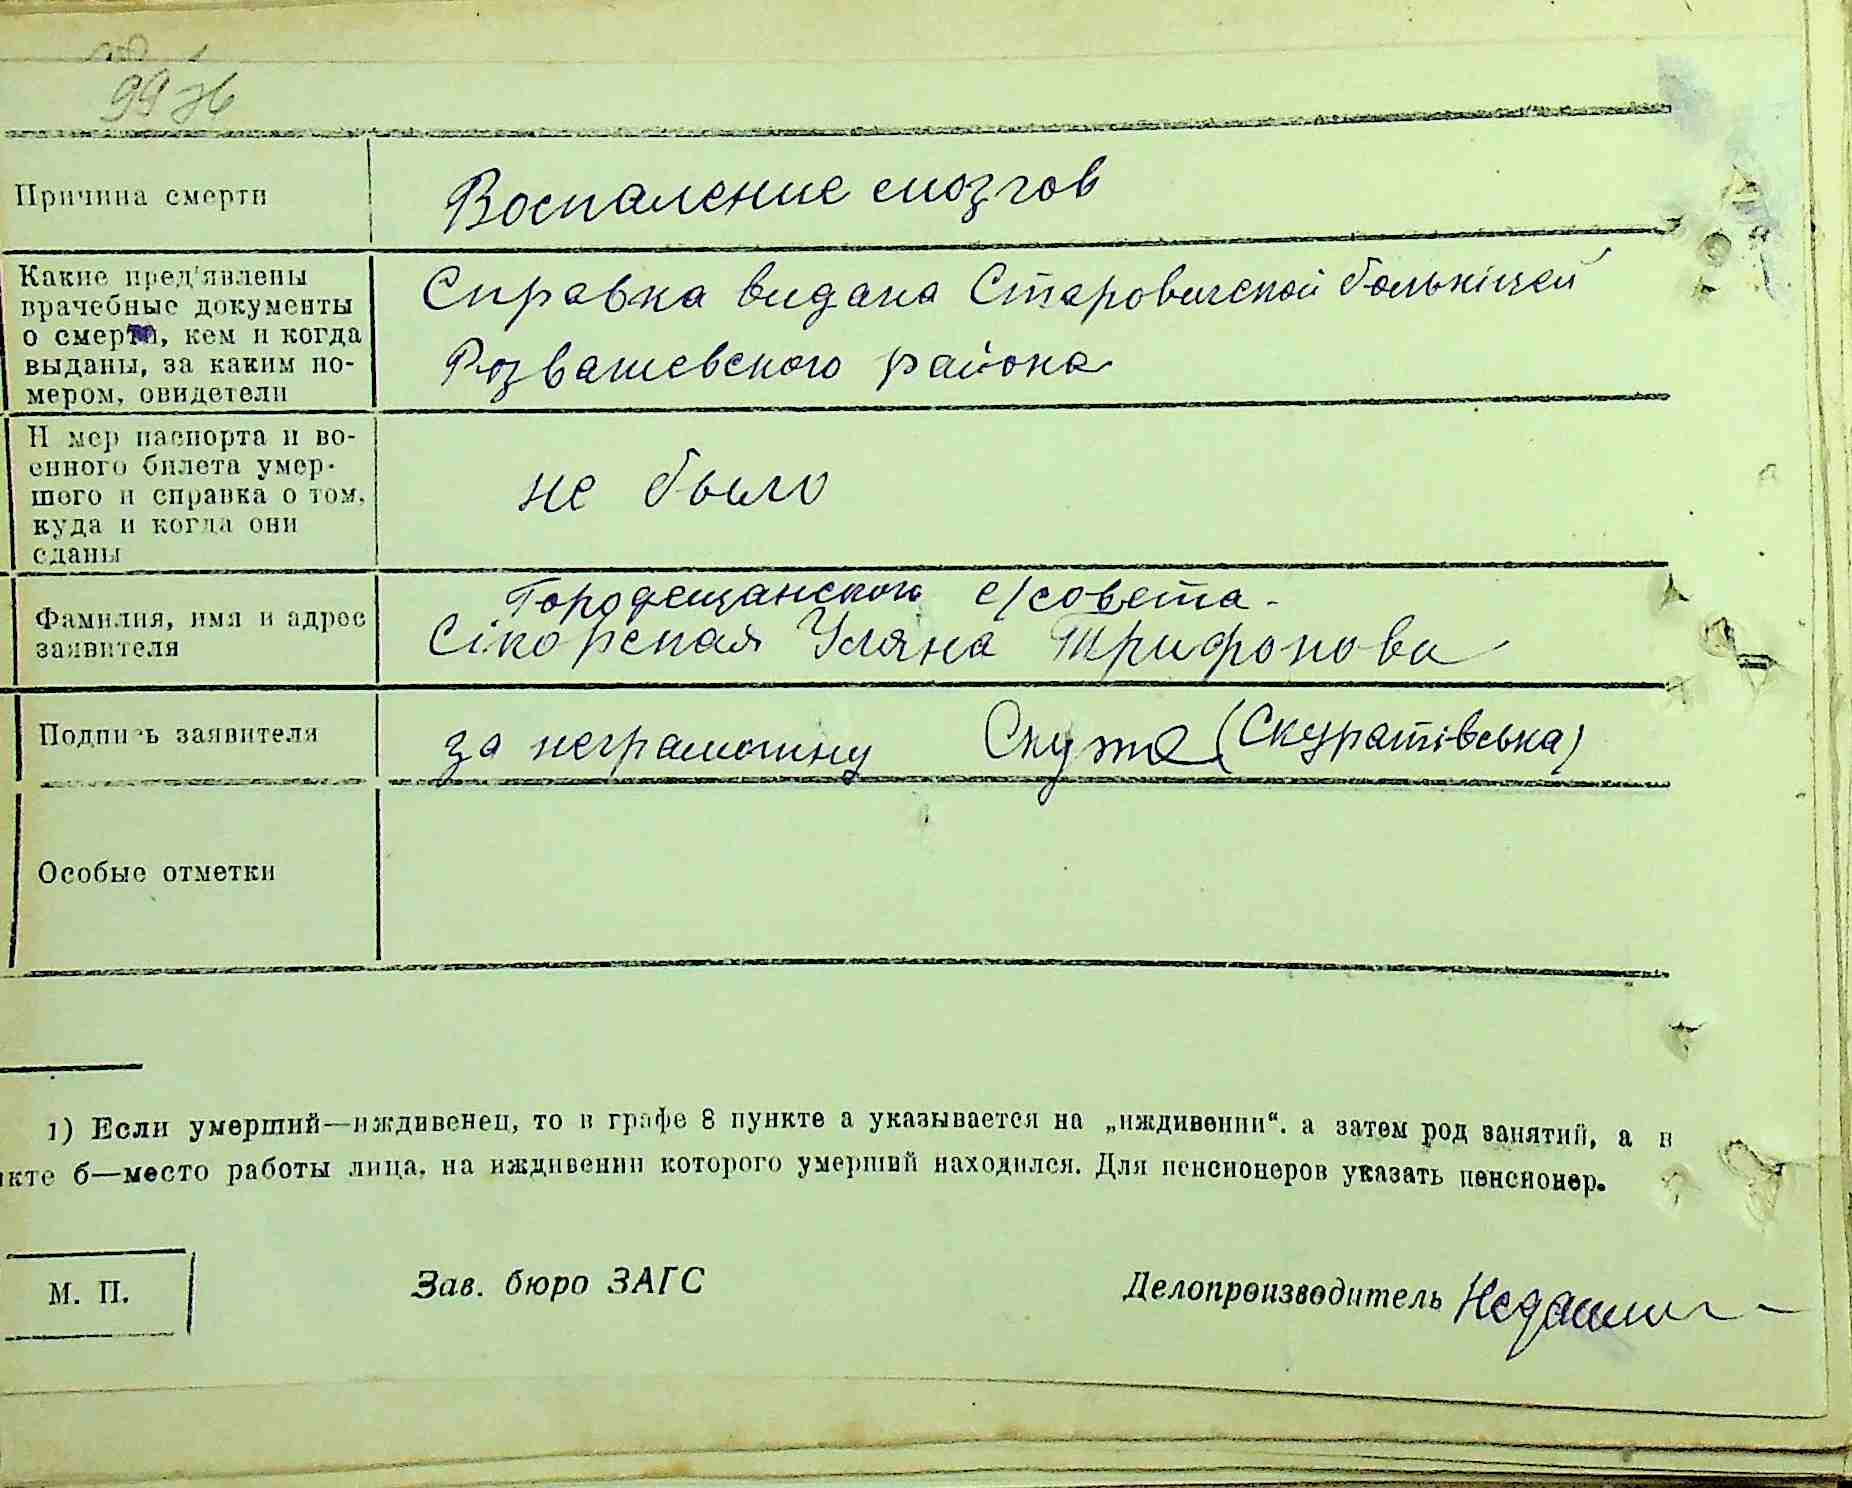 99 зв
Причина смерти
Воспаление мозгов
Какие пред'явлены
врачебные документы
о смерти, кем и когда
выданы, за каким но-
мером, свидетели
Справка видана Старовичской больніцей
Розважевского района
Н мер паспорта и во-
енного билета умер-
шего и справка о том,
куда и когда они
сданы
не было
Фамилия, имя и адрес
заявителя
Городещанского с/совета -
Сікорская Уляна Трифонова
Подпись заявителя
за неграмотну (Скуратівська)
Особые отметки
1) Если умерший—иждивенец, то в графе 8 пункте а указывается на „иждивении“. а затем род занятий, а в
нкте б—место работы лица, на иждивении которого умерший находился. Для пенсионеров указать пенсионер.
М. П.
Зав. бюро ЗАГС
Делопроизводитель